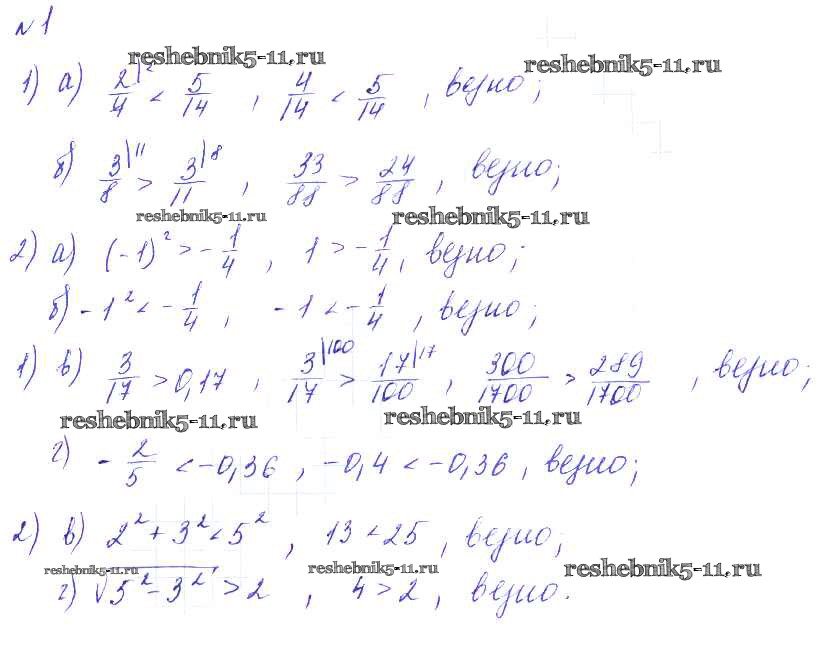 №1
reshebnik5-11.ru reshebnik5-11.ru
1) а) 2|²/4 < 5/14 , 4/14 < 5/14 , верно;
б) 3|¹¹/8 > 3|⁸/11 , 33/88 > 24/88 , верно;
reshebnik5-11.ru reshebnik5-11.ru
2) а) (-1)² > -1/4 , 1 > -1/4 , верно;
б) -1² < -1/4 , -1 < -1/4 , верно;
1) в) 3/17 > 0,17 , 3|¹⁰⁰/17 > 17|¹⁷/100 , 300/1700 > 289/1700 , верно;
reshebnik5-11.ru reshebnik5-11.ru
г) -2/5 < -0,36 , -0,4 < -0,36 , верно;
2) в) 2² + 3² < 5² , 13 < 25 , верно;
reshebnik5-11.ru reshebnik5-11.ru reshebnik5-11.ru
г) √(5² - 3²) > 2 , 4 > 2 , верно.